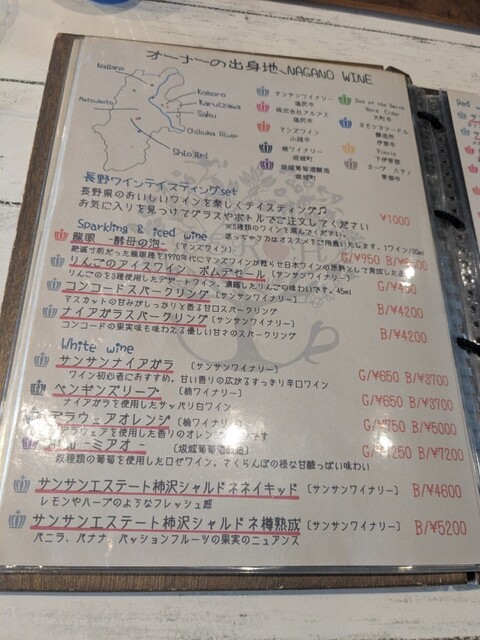 オーナーの出身地、NAGANO WINE
Nagano
Matsumoto
Komoro
Karuizawa
Saku
Chikuma River
Shiojiri
サンサンワイナリー
塩尻市
株式会社アルプス
塩尻市
マンズワイン
小諸市
楠ワイナリー
坂城葡萄酒醸造
坂城町
大町市
伊那市
下伊那郡
長野ワインテイスティングset
長野県のおいしいワインを楽しくテイスティング♫
お気に入りを見つけてグラスやボトルでご注文してください
¥1000
※3種類のワインを選んでください。
迷っちゃう方はオススメでご用意いたします！
Sparkling & iced wine
龍眼 -酵母の泡- (マンズワイン) G/¥950
りんごのアイスワイン ポムデセール (サンサンワイナリー)
りんごを3種使用したデザートワイン、濃縮したりんごの味わいです。45ml
コンコードスパークリング (サンサンワイナリー) B/¥4200
マスカットの甘みがしっかりと香る甘口スパークリング
ナイアガラスパークリング (サンサンワイナリー) B/¥4200
コンコードの果実味も味わえる優しい甘さのスパークリング
White wine
サンサンナイアガラ (サンサンワイナリー) G/¥650 B/¥3700
ワイン初心者におすすめ。甘い香りの広がるすっきり辛口ワイン
ペンギンズリープ (楠ワイナリー) G/¥650 B/¥3700
ナイアガラを使用したサッパリ白ワイン
デラウェアオレンジ (楠ワイナリー) G/¥750 B/¥5000
デラウェアを使用した香りのオレンジ
ミアオー (坂城葡萄酒醸造) B/¥7200
数種類の葡萄を使用したロゼワイン、さくらんぼの様な甘酸っぱい味わい
サンサンエステート柿沢シャルドネネイキッド (サンサンワイナリー) B/¥4600
レモンやハーブのようなフレッシュ感
サンサンエステート柿沢シャルドネ樽熟成 (サンサンワイナリー) B/¥5200
バニラ、バナナ、パッションフルーツの果実のニュアンス
Red w